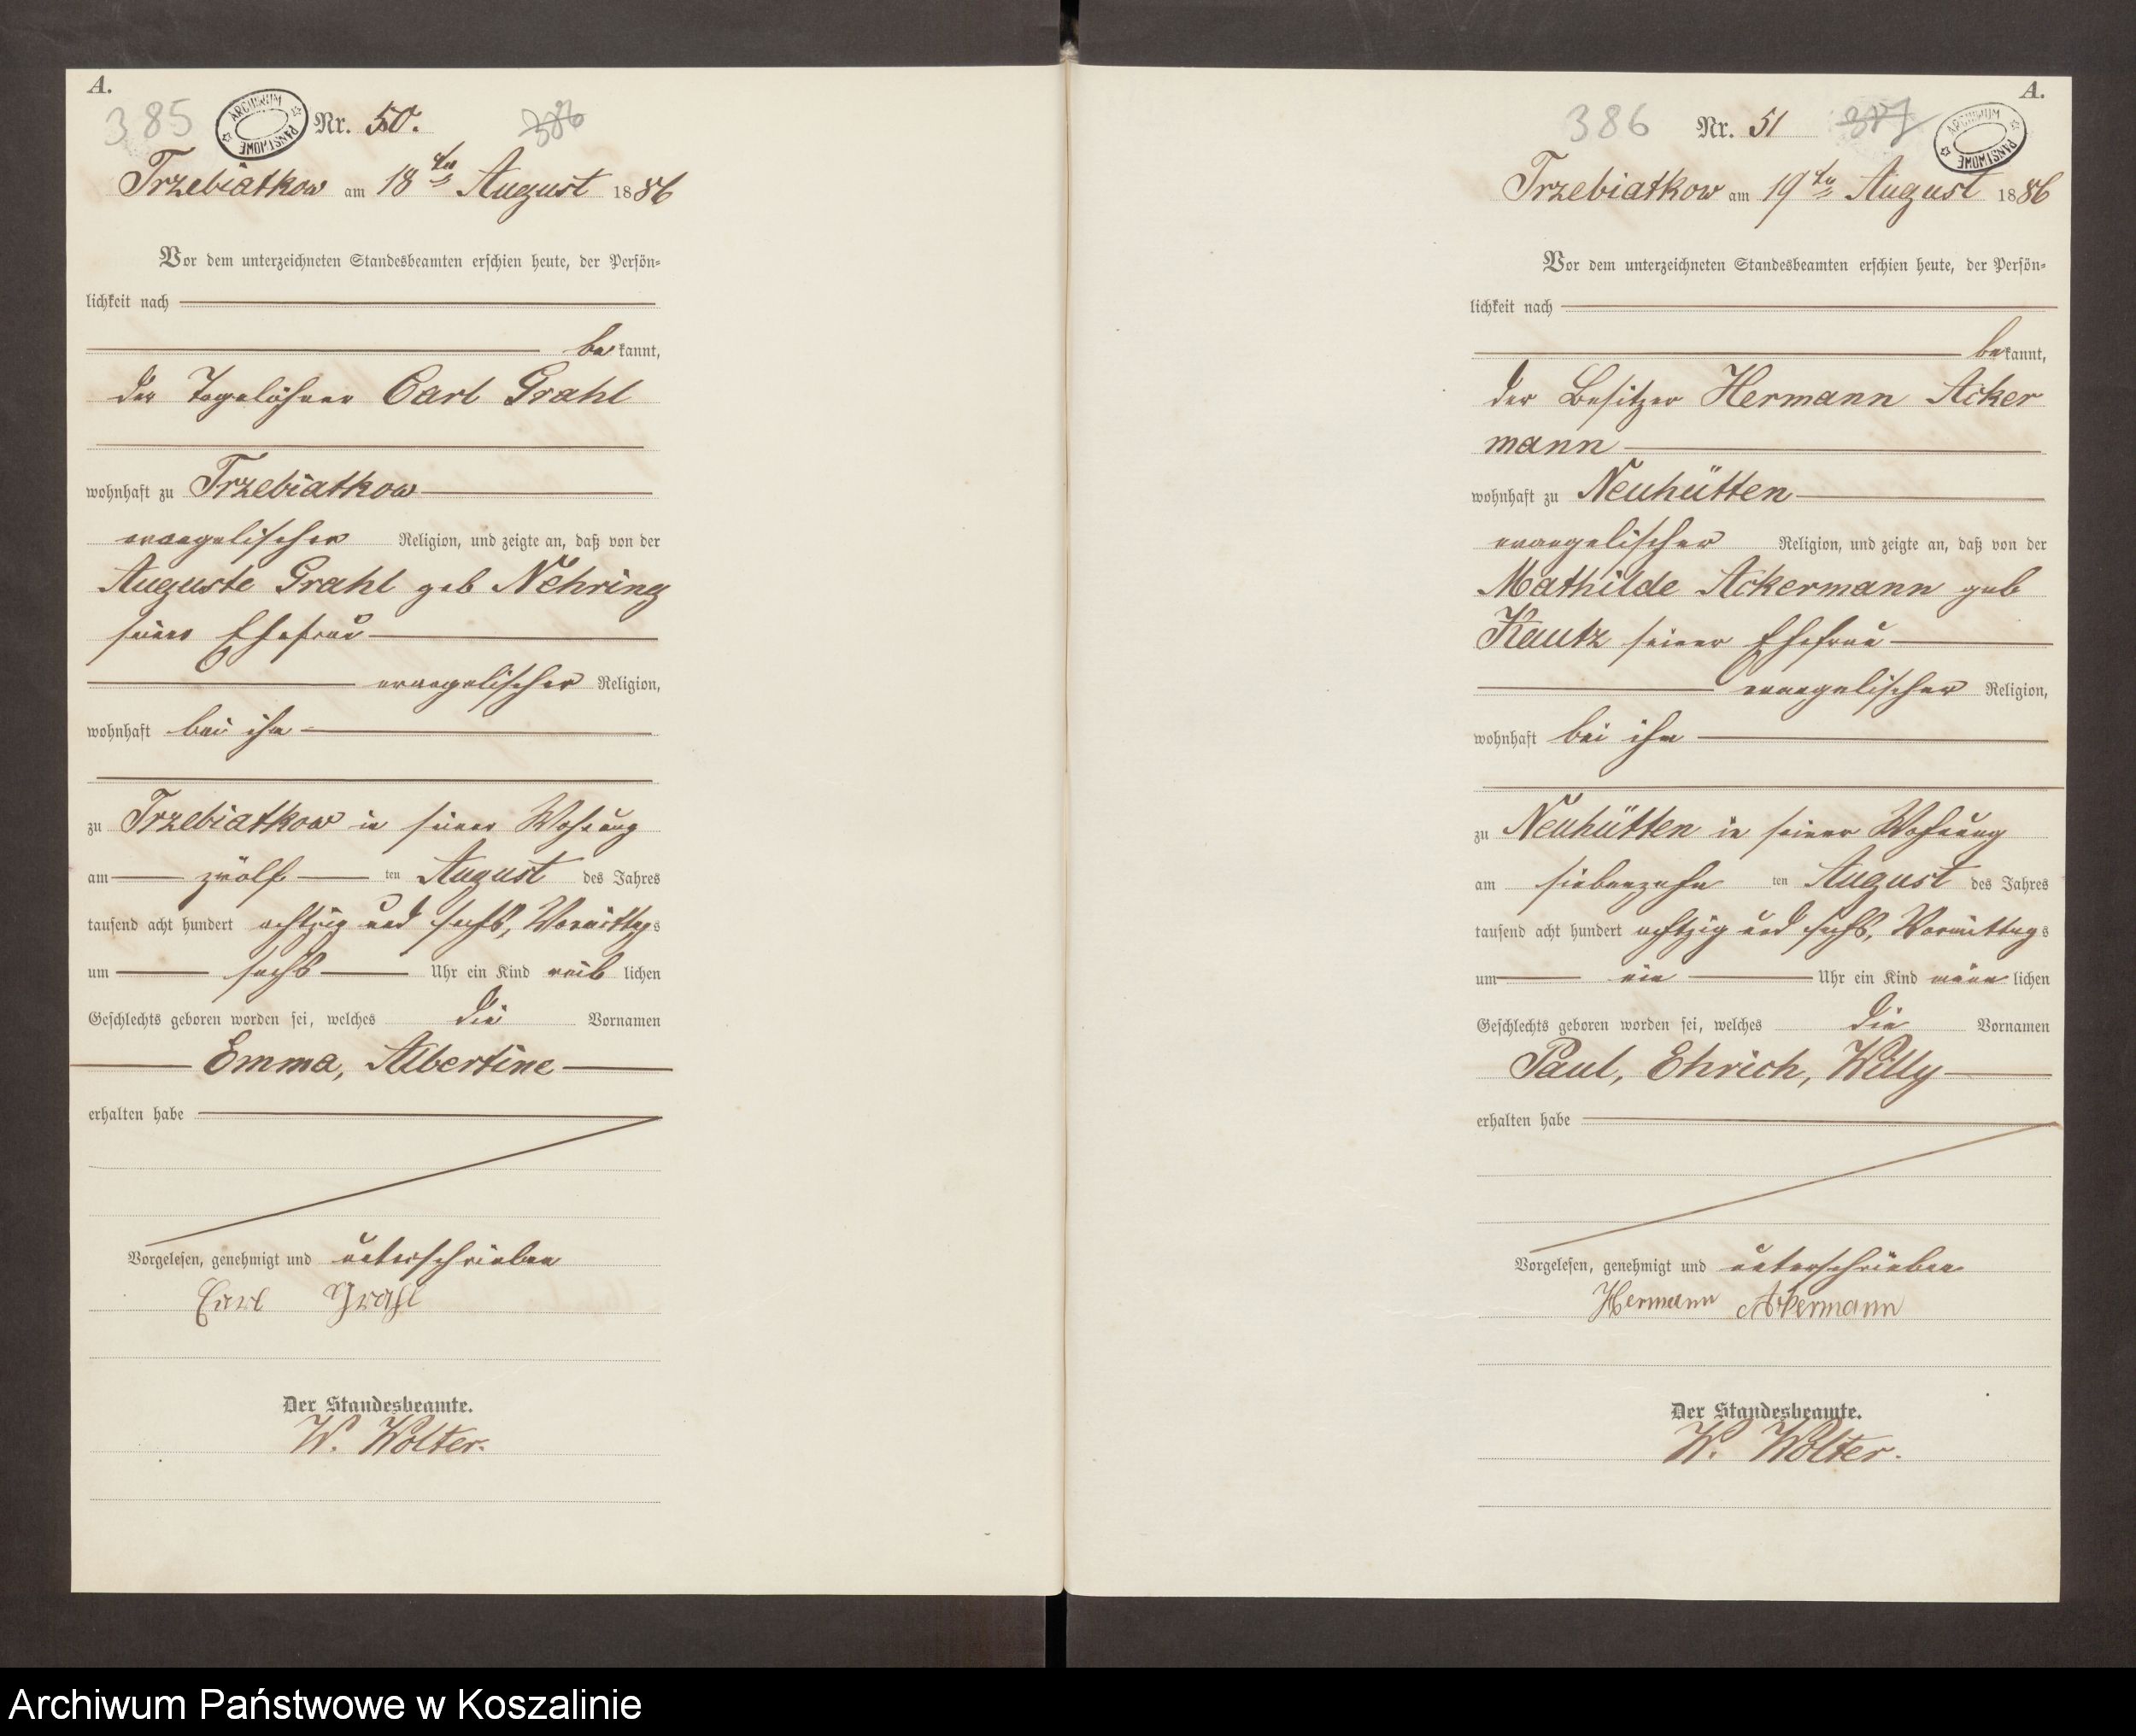 A.
385
ARCHIWUM PAŃSTWOWE
Nr. 50.
386
Trzebiatkow am 18ten August 1886
Vor dem unterzeichneten Standesbeamten erschien heute, der Persön-
lichkeit nach
bekannt,
der Tagelöhner Carl Grahl
wohnhaft zu Trzebiatkow
evangelischer Religion, und zeigte an, daß von der
Auguste Grahl geb Nehring
seiner Ehefrau
evangelischer Religion,
wohnhaft bei ihm
zu Trzebiatkow in seiner Wohnung
am zwölf ten August des Jahres
tausend acht hundert achtzig und sechs, Vormittags
um sechs Uhr ein Kind weiblichen
Geschlechts geboren worden sei, welches die Vornamen
Emma, Albertine
erhalten habe
Vorgelesen, genehmigt und unterschrieben
Carl Grahl
Der Standesbeamte.
W. Wolter.
A.
386
Nr. 51
387
ARCHIWUM PAŃSTWOWE
Trzebiatkow am 19ten August 1886
Vor dem unterzeichneten Standesbeamten erschien heute, der Persön-
lichkeit nach
bekannt,
der Besitzer Hermann Acker
mann
wohnhaft zu Neuhütten
evangelischer Religion, und zeigte an, daß von der
Mathilde Ackermann geb
Kautz seiner Ehefrau
evangelischer Religion,
wohnhaft bei ihm
zu Neuhütten in seiner Wohnung
am siebenzehn ten August des Jahres
tausend acht hundert achtzig und sechs, Vormittags
um ein Uhr ein Kind männlichen
Geschlechts geboren worden sei, welches die Vornamen
Paul, Ehrich, Willy
erhalten habe
Vorgelesen, genehmigt und unterschrieben
Hermann Ackermann
Der Standesbeamte.
W. Wolter.
Archiwum Państwowe w Koszalinie